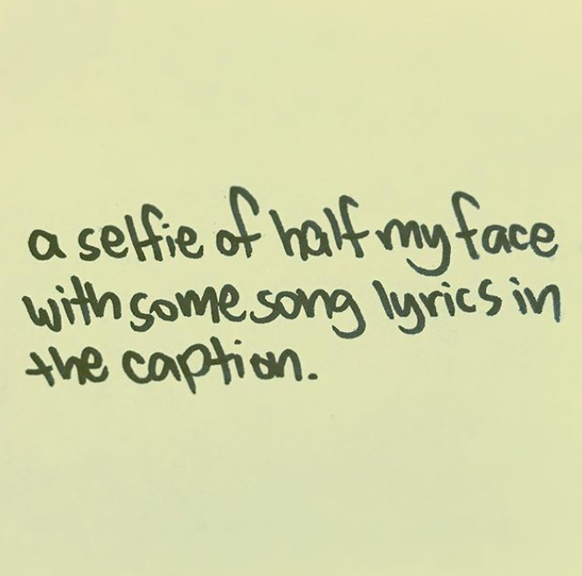 a selfie of half my face
with some song lyrics in
the caption.